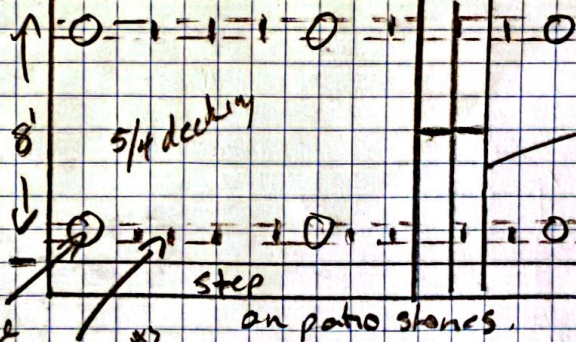 8'
5/4 decking
step
on patio stones.